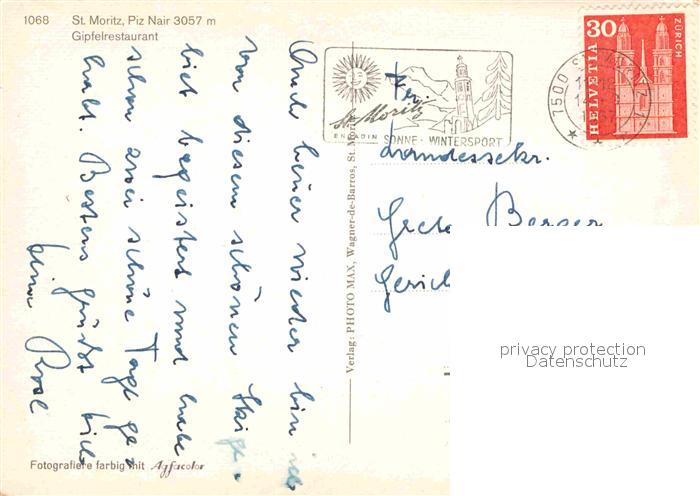 1068 St. Moritz, Piz Nair 3057 m
Gipfelrestaurant
Auch heuer wieder bin ich
von diesem schönen Skige-
biet begeistert und habe
schon zwei schöne Tage ge-
habt. Bestens grüßt Dich
Rosl
Fotografiere farbig mit Agfacolor
Verlag: PHOTO MAX, Wagner-de-Barros, St. Moritz
St. Moritz
ENGADIN SONNE · WINTERSPORT
7500 ST. MORITZ 1
30
HELVETIA
ZÜRICH
Landessekr.
Berger
privacy protection
Datenschutz